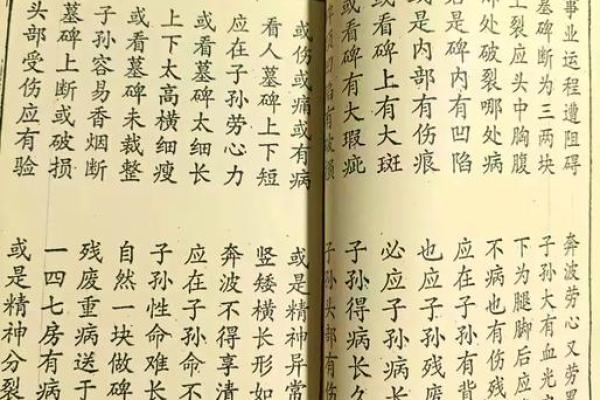 事业运程遭阻碍
墓碑断为三两块
上裂应头中胸腹
哪处破裂哪处病
若是碑内有凹陷
或是内部有伤痕
或看碑上有大斑
或看碑有大瑕疵
凹陷有破
奔波劳心又劳累
子孙大有血光
下为腿脚后应
不病也有伤残
应在子孙有背
也应子孙残废
必应子孙
子孙得病长久
子孙头部有伤
或伤或痛或有病
看人墓碑上下短
应在子孙劳心力
或看墓碑太细长
上下太高横细瘦
或看墓碑未裁整
子孙容易香烟断
墓碑上断或破损
头部受伤应有验
或是精神异常
竖矮横长形如
奔波不得享清
应在子孙命不
子孙性命难长
自然一块做碑
残废重病送于
一四七房有病
或是精神分裂